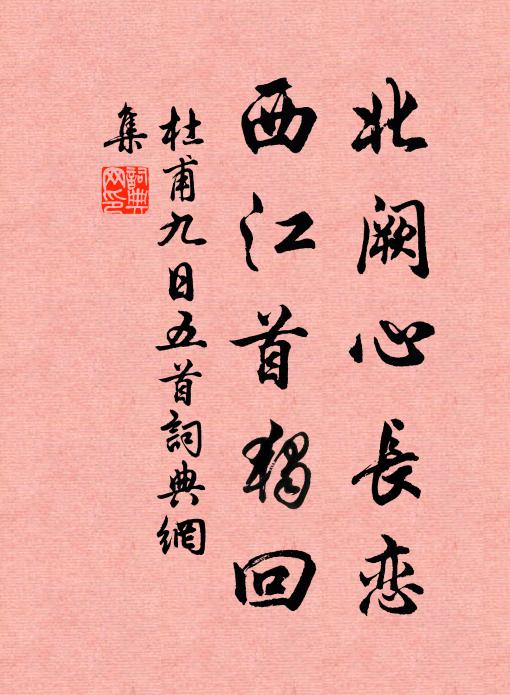 北阙心長恋
西江首独回
杜甫九日五首詞典網
集
詞典网印